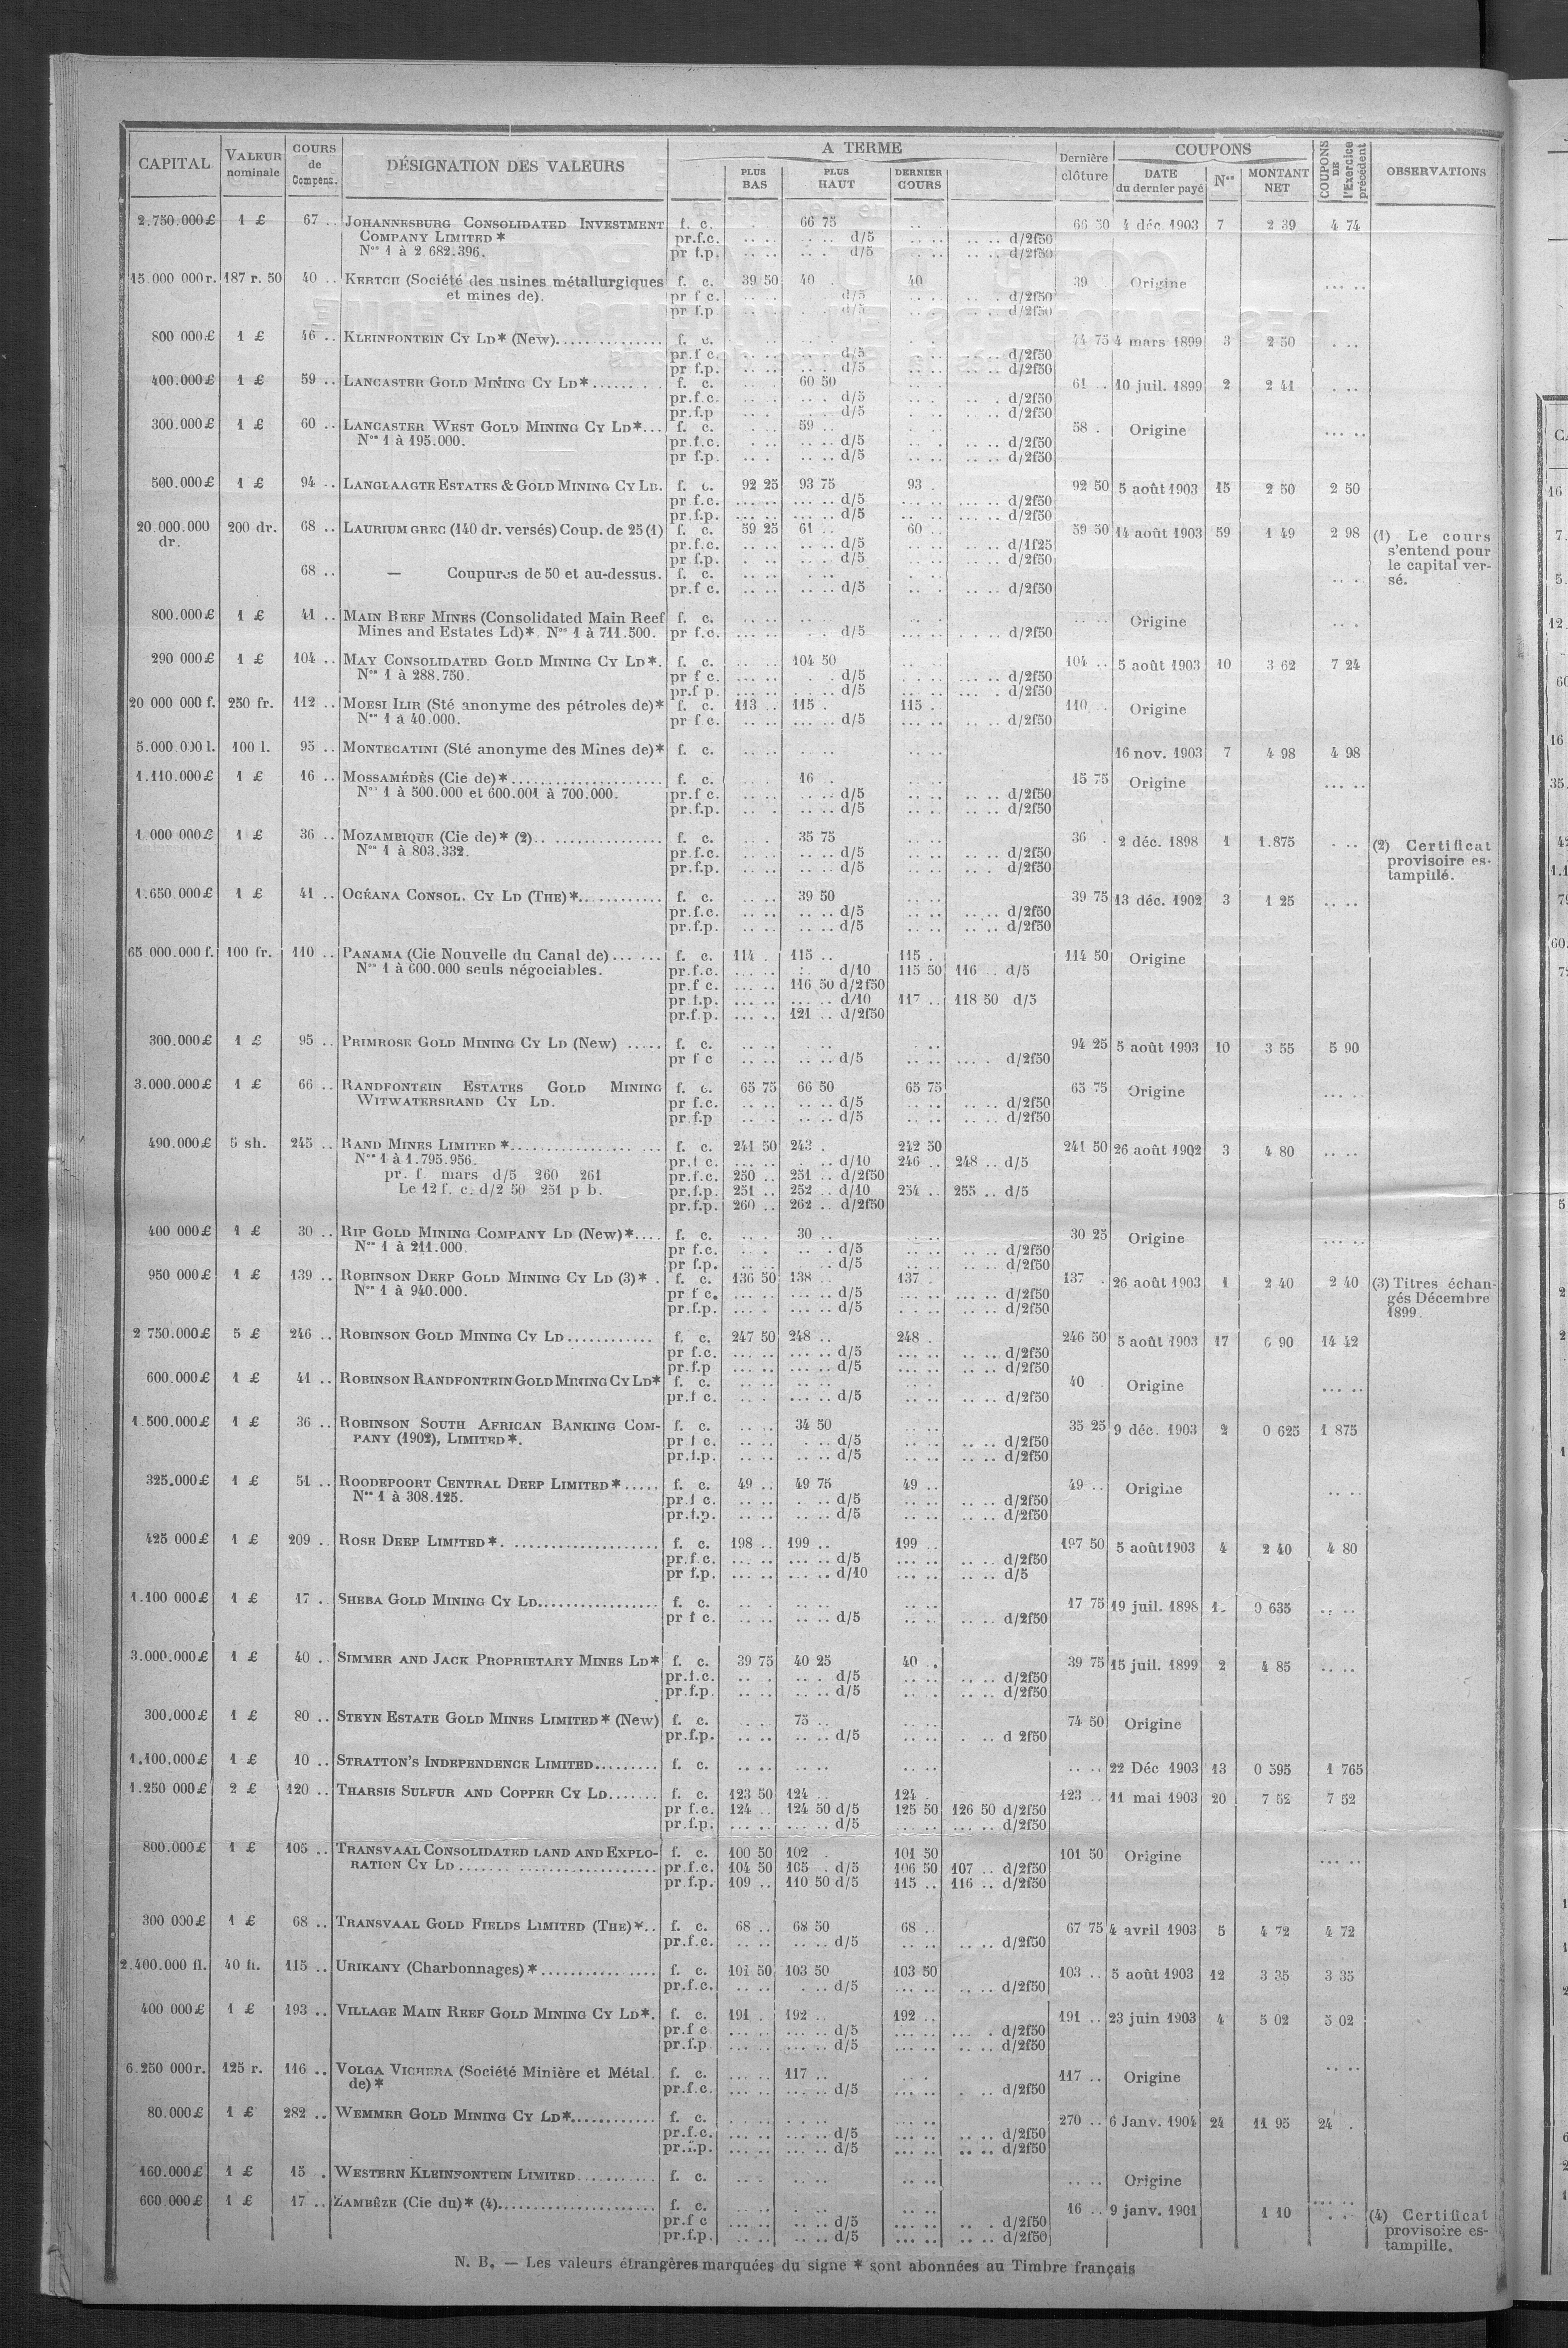 CAPITAL VALEUR nominale COURS de Compens. DÉSIGNATION DES VALEURS A TERME Dernière clôture COUPONS COUPONS DE l'Exercice précédent OBSERVATIONS
PLUS BAS PLUS HAUT DERNIER COURS DATE du dernier payé Nos MONTANT NET
2.750.000£ 1 £ 67 .. JOHANNESBURG CONSOLIDATED INVESTMENT f. c. 66 75 66 50 4 déc. 1903 7 2 39 4 74
COMPANY LIMITED * pr.f.c. d/5 d/2f50
Nos 1 à 2 682.396. pr f.p. d/5 d/2f50
15.000 000r. 187 r. 50 40 .. KERTCH (Société des usines métallurgiques f. c. 39 50 40 . 40 39 Origine
et mines de). pr f c. d/5 d/2f50
pr f.p d/5 d/2f50
800 000£ 1 £ 46 .. KLEINFONTEIN CY LD* (New) f. c. 44 75 4 mars 1899 3 2 50
pr.f c. d/5 d/2f50
pr f.p. d/5 d/2f50
400.000£ 1 £ 59 .. LANCASTER GOLD MINING CY LD* f. c. 60 50 61 .. 10 juil. 1899 2 2 41
pr.f.c. d/5 d/2f50
pr.f.p d/5 d/2f50
300.000£ 1 £ 60 .. LANCASTER WEST GOLD MINING CY LD* f. c. 59 .. 58 . Origine
Nos 1 à 195.000. pr.f.c. d/5 d/2f50
pr f.p. d/5 d/2f50
500.000£ 1 £ 94 .. LANGLAAGTE ESTATES & GOLD MINING CY LD. f. c. 92 25 93 75 93 . 92 50 5 août 1903 15 2 50 2 50
pr f.c. d/5 d/2f50
pr.f.p. d/5 d/2f50
20.000.000 dr. 200 dr. 68 .. LAURIUM GREC (140 dr. versés) Coup. de 25 (1) f. c. 59 25 61 .. 60 .. 59 50 14 août 1903 59 1 49 2 98 (1) Le cours
pr.f.c. d/5 d/1f25 s'entend pour
pr f.p. d/5 d/2f50 le capital ver-
68 .. — Coupures de 50 et au-dessus. f. c. sé.
pr.f c. d/5 d/2f50
800.000£ 1 £ 41 .. MAIN REEF MINES (Consolidated Main Reef f. c. Origine
Mines and Estates Ld)*. Nos 1 à 711.500. pr f.c. d/5 d/2f50
290 000£ 1 £ 104 .. MAY CONSOLIDATED GOLD MINING CY LD*. f. c. 104 50 104 .. 5 août 1903 10 3 62 7 24
Nos 1 à 288.750. pr f c. d/5 d/2f50
pr.f p. d/5 d/2f50
20 000 000 f. 250 fr. 112 .. MOESI ILIR (Sté anonyme des pétroles de)* f. c. 113 .. 115 . 115 .. 110 .. Origine
Nos 1 à 40.000. pr f c. d/5 d/2f50
5.000.000 l. 100 l. 95 .. MONTECATINI (Sté anonyme des Mines de)* f. c. 16 nov. 1903 7 4 98 4 98
1.110.000£ 1 £ 16 .. MOSSAMÉDÈS (Cie de)* f. c. 16 . 15 75 Origine
Nos 1 à 500.000 et 600.001 à 700.000. pr.f c. d/5 d/2f50
pr.f.p. d/5 d/2f50
1.000 000£ 1 £ 36 .. MOZAMBIQUE (Cie de)* (2) f. c. 35 75 36 . 2 déc. 1898 1 1.875 (2) Certificat
Nos 1 à 803.332. pr.f.c. d/5 d/2f50 provisoire es-
pr.f.p. d/5 d/2f50 tampillé.
1.650 000£ 1 £ 41 .. OCÉANA CONSOL. CY LD (THE)* f. c. 39 50 39 75 13 déc. 1902 3 1 25
pr.f.c. d/5 d/2f50
pr.f.p. d/5 d/2f50
65 000.000 f. 100 fr. 110 .. PANAMA (Cie Nouvelle du Canal de) f. c. 114 . 115 .. 115 . 114 50 Origine
Nos 1 à 600.000 seuls négociables. pr.f.c. d/10 115 50 116 .. d/5
pr.f c. 116 50 d/2f50
pr f.p. d/10 117 .. 118 50 d/5
pr.f.p. 121 .. d/2f50
300.000£ 1 £ 95 .. PRIMROSE GOLD MINING CY LD (New) f. c. 94 25 5 août 1903 10 3 55 5 90
pr f c d/5 d/2f50
3.000.000£ 1 £ 66 .. RANDFONTEIN ESTATES GOLD MINING f. c. 65 75 66 50 65 75 65 75 Origine
WITWATERSRAND CY LD. pr f.c. d/5 d/2f50
pr.f.p d/5 d/2f50
490.000£ 5 sh. 245 .. RAND MINES LIMITED * f. c. 241 50 243 . 242 50 241 50 26 août 1902 3 4 80
Nos 1 à 1.795.956. pr.f c. d/10 246 .. 248 .. d/5
pr. f. mars d/5 260 261 pr.f.c. 250 .. 251 .. d/2f50
Le 12 f. c. d/2 50 251 p b. pr.f.p. 251 .. 252 .. d/10 254 .. 255 .. d/5
pr.f.p. 260 .. 262 .. d/2f50
400 000£ 1 £ 30 .. RIP GOLD MINING COMPANY LD (New)* f. c. 30 .. 30 25 Origine
Nos 1 à 211.000. pr f.c. d/5 d/2f50
pr f.p. d/5 d/2f50
950 000£ 1 £ 139 .. ROBINSON DEEP GOLD MINING CY LD (3)* . f. c. 136 50 138 .. 137 . 137 . 26 août 1903 1 2 40 2 40 (3) Titres échan-
Nos 1 à 940.000. pr f c. d/5 d/2f50 gés Décembre
pr.f.p. d/5 d/2f50 1899.
2 750.000£ 5 £ 246 .. ROBINSON GOLD MINING CY LD f. c. 247 50 248 .. 248 . 246 50 5 août 1903 17 6 90 14 42
pr f.c. d/5 d/2f50
pr.f.p d/5 d/2f50
600.000£ 1 £ 41 .. ROBINSON RANDFONTEIN GOLD MINING CY LD* f. c. 40 Origine
pr.f c. d/5 d/2f50
1.500.000£ 1 £ 36 .. ROBINSON SOUTH AFRICAN BANKING COM- f. c. 34 50 35 25 9 déc. 1903 2 0 625 1 875
PANY (1902), LIMITED*. pr f c. d/5 d/2f50
pr.f.p. d/5 d/2f50
325.000£ 1 £ 51 .. ROODEPOORT CENTRAL DEEP LIMITED* f. c. 49 .. 49 75 49 .. 49 .. Origine
Nos 1 à 308.125. pr.f c. d/5 d/2f50
pr.f.p. d/5 d/2f50
425 000£ 1 £ 209 .. ROSE DEEP LIMITED*. f. c. 198 .. 199 .. 199 .. 197 50 5 août 1903 4 2 40 4 80
pr.f c. d/5 d/2f50
pr f.p. d/10 d/5
1.100 000£ 1 £ 17 .. SHEBA GOLD MINING CY LD f. c. 17 75 19 juil. 1898 1. 0 635
pr f c. d/5 d/2f50
3.000.000£ 1 £ 40 .. SIMMER AND JACK PROPRIETARY MINES LD* f. c. 39 75 40 25 40 .. 39 75 15 juil. 1899 2 4 85
pr.f.c. d/5 d/2f50
pr.f.p. d/5 d/2f50
300.000£ 1 £ 80 .. STEYN ESTATE GOLD MINES LIMITED* (New) f. c. 75 .. 74 50 Origine
pr.f.p. d/5 d 2f50
1.100.000£ 1 £ 10 .. STRATTON'S INDEPENDENCE LIMITED f. c. 22 Déc 1903 13 0 595 1 765
1.250 000£ 2 £ 120 .. THARSIS SULFUR AND COPPER CY LD f. c. 123 50 124 .. 124 . 123 .. 11 mai 1903 20 7 52 7 52
pr f.c. 124 .. 124 50 d/5 125 50 126 50 d/2f50
pr.f.p. d/5 d/2f50
800.000£ 1 £ 105 .. TRANSVAAL CONSOLIDATED LAND AND EXPLO- f. c. 100 50 102 . 101 50 101 50 Origine
RATION CY LD pr.f.c. 104 50 105 . d/5 106 50 107 .. d/2f50
pr f.p. 109 .. 110 50 d/5 115 .. 116 .. d/2f50
300 000£ 1 £ 68 .. TRANSVAAL GOLD FIELDS LIMITED (THE)*.. f. c. 68 .. 68 50 68 .. 67 75 4 avril 1903 5 4 72 4 72
pr.f.c. d/5 d/2f50
2.400.000 fl. 40 fl. 115 .. URIKANY (Charbonnages)* f. c. 101 50 103 50 103 50 103 .. 5 août 1903 12 3 35 3 35
pr.f.c. d/5 d/2f50
400 000£ 1 £ 193 .. VILLAGE MAIN REEF GOLD MINING CY LD*. f. c. 191 . 192 .. 192 .. 191 .. 23 juin 1903 4 5 02 5 02
pr.f c d/5 d/2f50
pr.f.p d/5 d/2f50
6.250 000r. 125 r. 116 .. VOLGA VICHERA (Société Minière et Métal. f. c. 117 .. 117 .. Origine
de)* pr.f.c. d/5 d/2f50
80.000£ 1 £ 282 .. WEMMER GOLD MINING CY LD* f. c. 270 .. 6 Janv. 1904 24 11 95 24 .
pr.f.c. d/5 d/2f50
pr.f.p. d/5 d/2f50
160.000£ 1 £ 15 . WESTERN KLEINFONTEIN LIMITED f. c. Origine
600.000£ 1 £ 17 .. ZAMBÈZE (Cie du)* (4) f. c. 16 .. 9 janv. 1901 1 10 (4) Certificat
pr.f c d/5 d/2f50 provisoire es-
pr.f.p. d/5 d/2f50 tampille.
N. B. — Les valeurs étrangères marquées du signe * sont abonnées au Timbre français